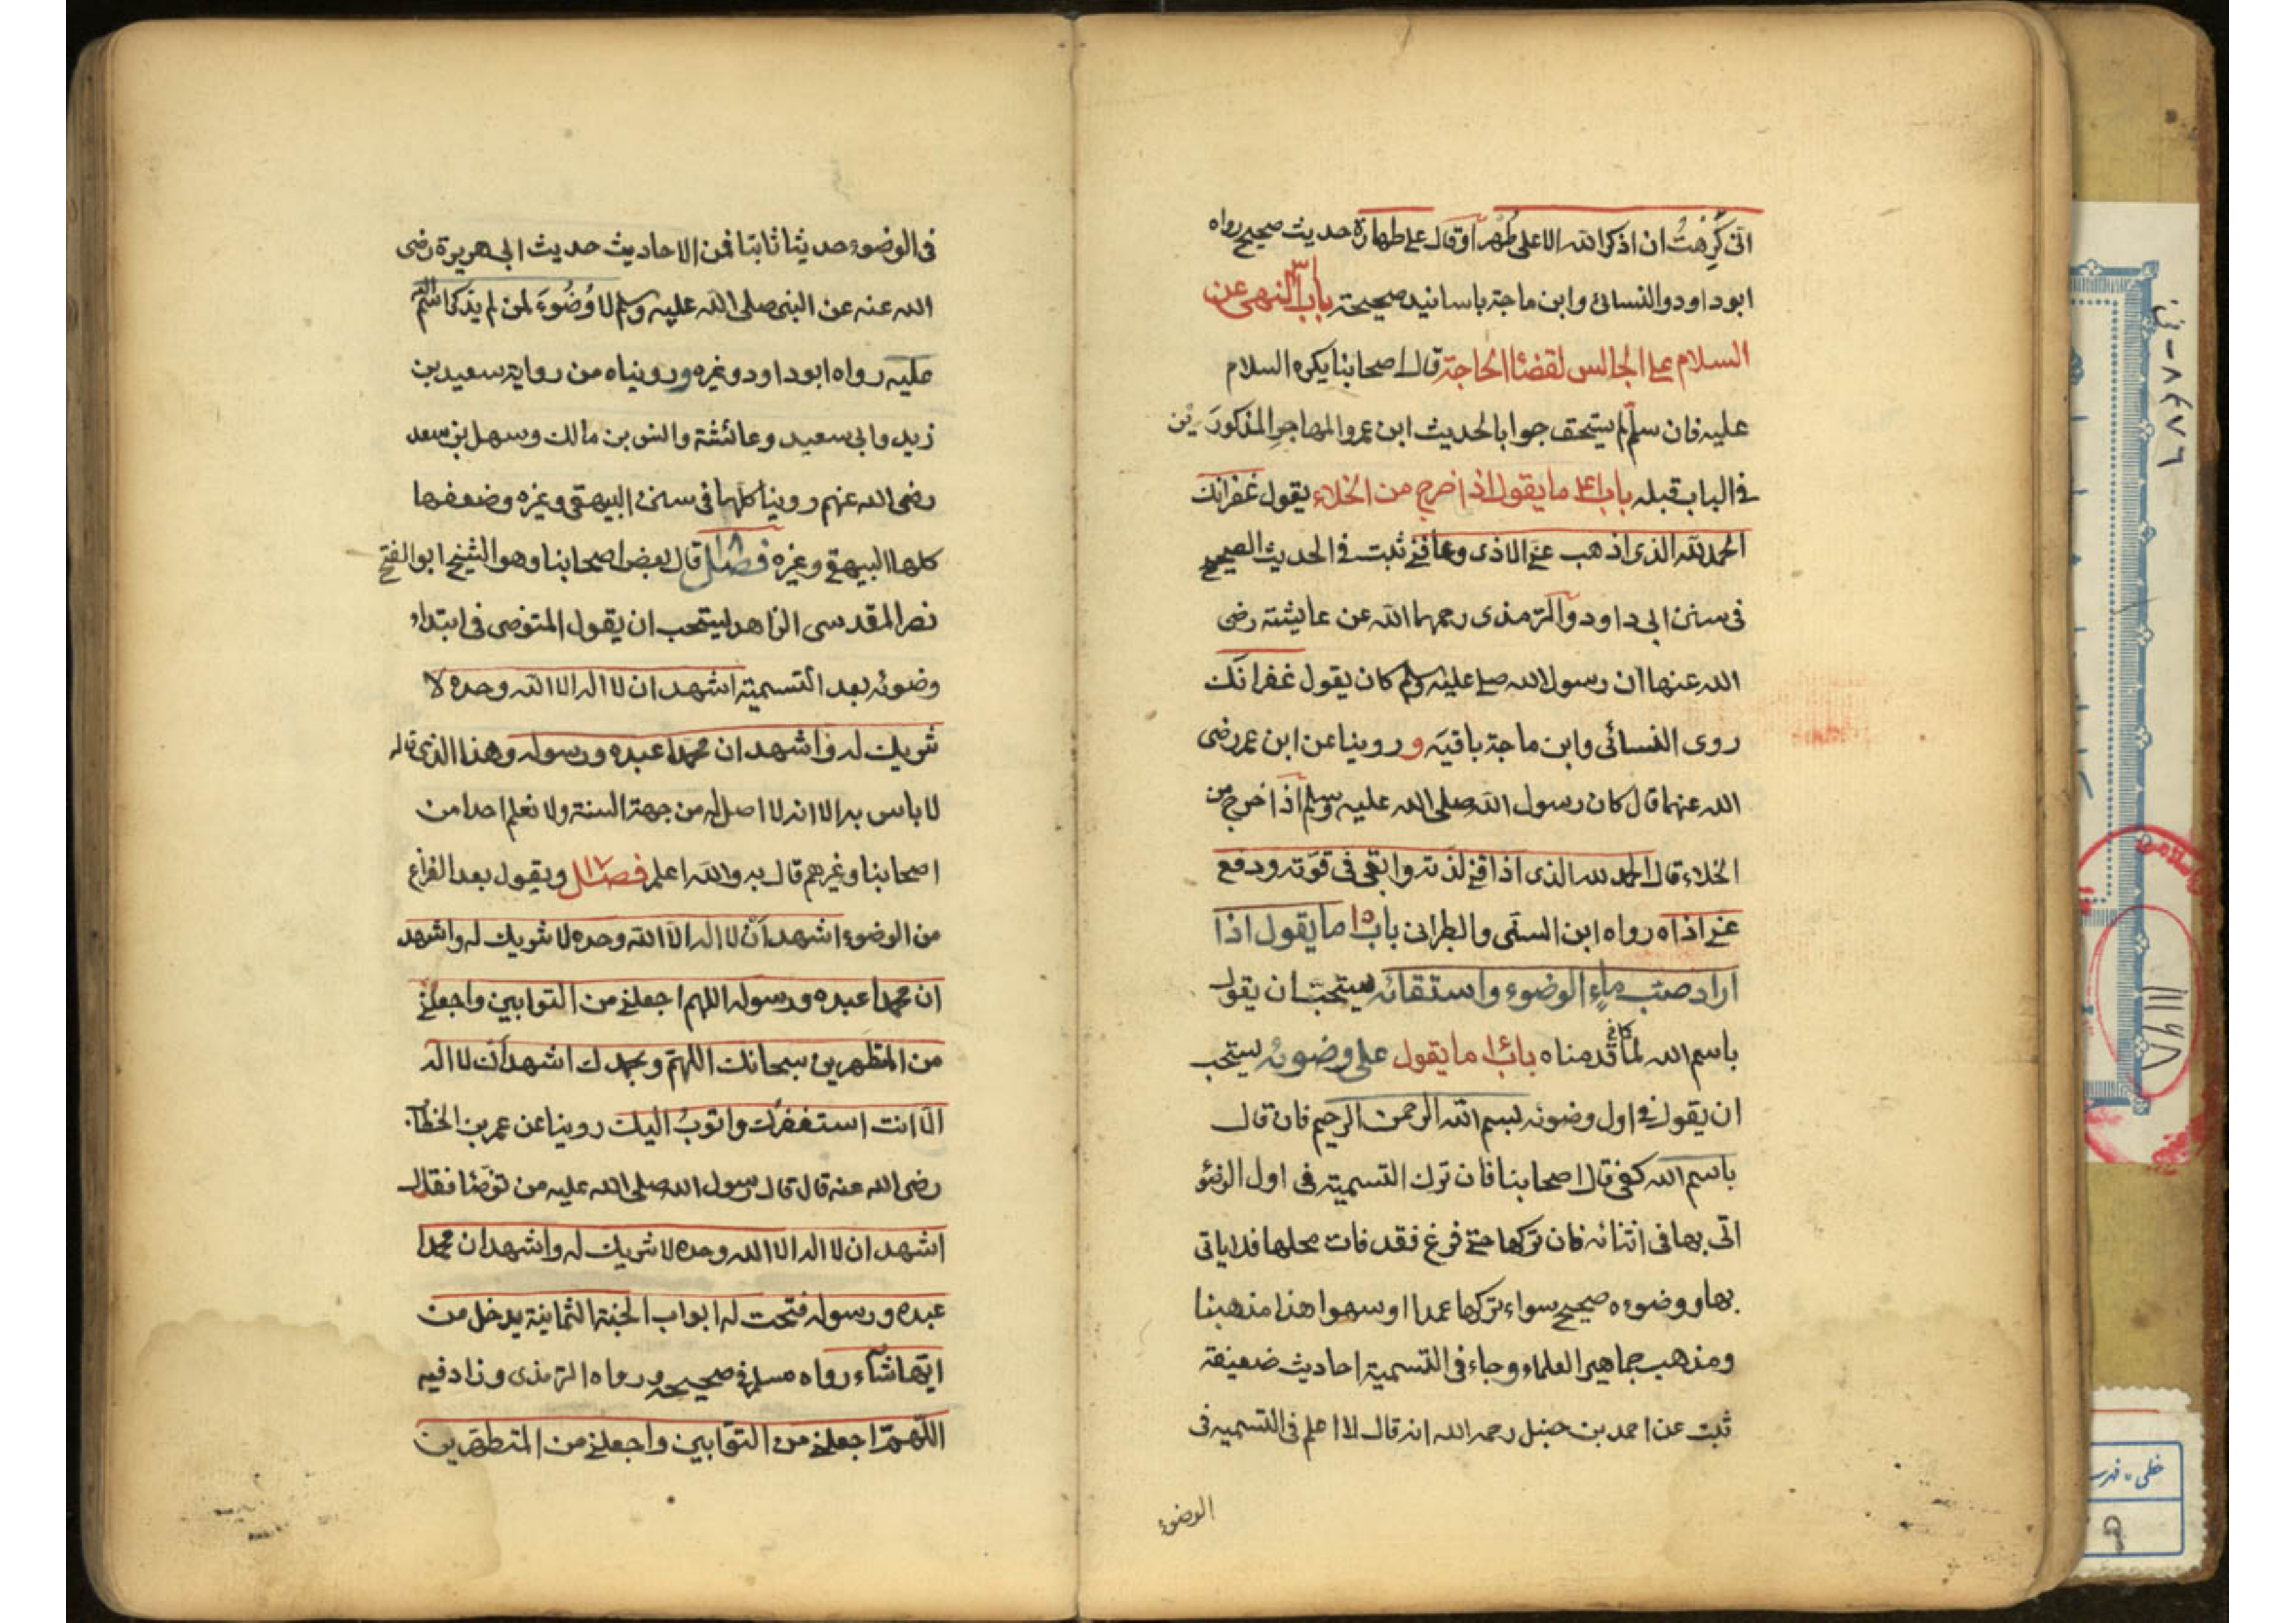 انّى كَرِهتُ ان اذكر الله الا على طُهر او قال على طهارة حديث صحيح رواه
ابو داود والنسائى وابن ماجة باسانيد صحيحة باب النهى عن
السلام على الجالس لقضاء الحاجة قال اصحابنا يكره السلام
عليه فان سلّم لم يستحق جوابا لحديث ابن عمر والمهاجر المذكورَين
فى الباب قبله باب ما يقول اذا خرج من الخلاء يقول غفرانك
الحمد لله الذى اذهب عنى الاذى وعافنى ثبت فى الحديث الصحيح
فى سنن ابى داود والترمذى رحمهما الله عن عايشة رضى
الله عنها ان رسول الله صلى عليه وسلم كان يقول غفرانك
روى النسائى وابن ماجة باقيَه وروينا عن ابن عمر رضى
الله عنهما قال كان رسول الله صلى الله عليه وسلم اذا خرج من
الخلاء قال الحمد لله الذى اذاقنى لذته وابقى فى قوّته ودفع
عنى اذاه رواه ابن السنّى والطبرانى باب ما يقول اذا
اراد صبّ ماء الوضوء واستقائه يستحبّ ان يقول
باسم الله لما قدمناه باب ما يقول على وضوئه يستحب
ان يقول فى اول وضوئه بسم الله الرحمن الرحيم فان قال
باسم الله كفى قال اصحابنا فان ترك التسمية فى اول الوضؤ
اتى بها فى اثنائه فان تركها حتى فرغ فقد فات محلها فلا ياتى
بها ووضوءه صحيح سواء تركها عمدا او سهوا هذا مذهبنا
ومذهب جماهير العلماء وجاء فى التسمية احاديث ضعيفة
ثبت عن احمد بن حنبل رحمه الله انه قال لا اعلم فى التسميه فى
الوضوء
فى الوضوء حديثا ثابتا فمن الاحاديث حديث ابى هريرة رضى
الله عنه عن النبى صلى الله عليه وسلم لا وُضُوءَ لمن لم يذكر اسم الله
عليه رواه ابو داود وغيره وروبناه من رواية سعيد بن
زيد وابى سعيد وعائشة وانس بن مالك وسهل بن سعد
رضى الله عنهم روينا كلها فى سنن البيهقى وغيره وضعفها
كلها البيهقى وغيره فصل قال بعض اصحابنا وهو الشيخ ابو الفتح
نصر المقدسى الزاهد يستحب ان يقول المتوضى فى ابتداء
وضوئه بعد التسمية اشهد ان لا اله الا الله وحده لا
شريك له واشهد ان محمدا عبده ورسوله وهذا الذى قاله
لا باس به الا انه لا اصل له من جهة السنة ولا نعلم احدا من
اصحابنا وغيرهم قال به والله اعلم فصل ويقول بعد الفراغ
من الوضوء اشهد اَنْ لا اله الا الله وحده لا شريك له واشهد
ان محمدا عبده ورسوله اللهم اجعلنى من التوابين واجعلنى
من المتطهرين سبحانك اللهمّ وبحمدك اشهد ان لا اله
الّا انت استغفرك واتوبُ اليك روينا عن عمر بن الخطاب
رضى الله عنه قال قال رسول الله صلى الله عليه من توضّئا فقال
اشهد ان لا اله الا الله وحده لا شريك له واشهد ان محمدا
عبده ورسوله فتحت له ابواب الجنة الثمانية يدخل من
ايّها شآء رواه مسلم فى صحيحه ورواه الترمذى وزاد فيه
اللّهمّ اجعلنى من التوّابين واجعلنى من المتطهّرين
خطى - فهرست
٩